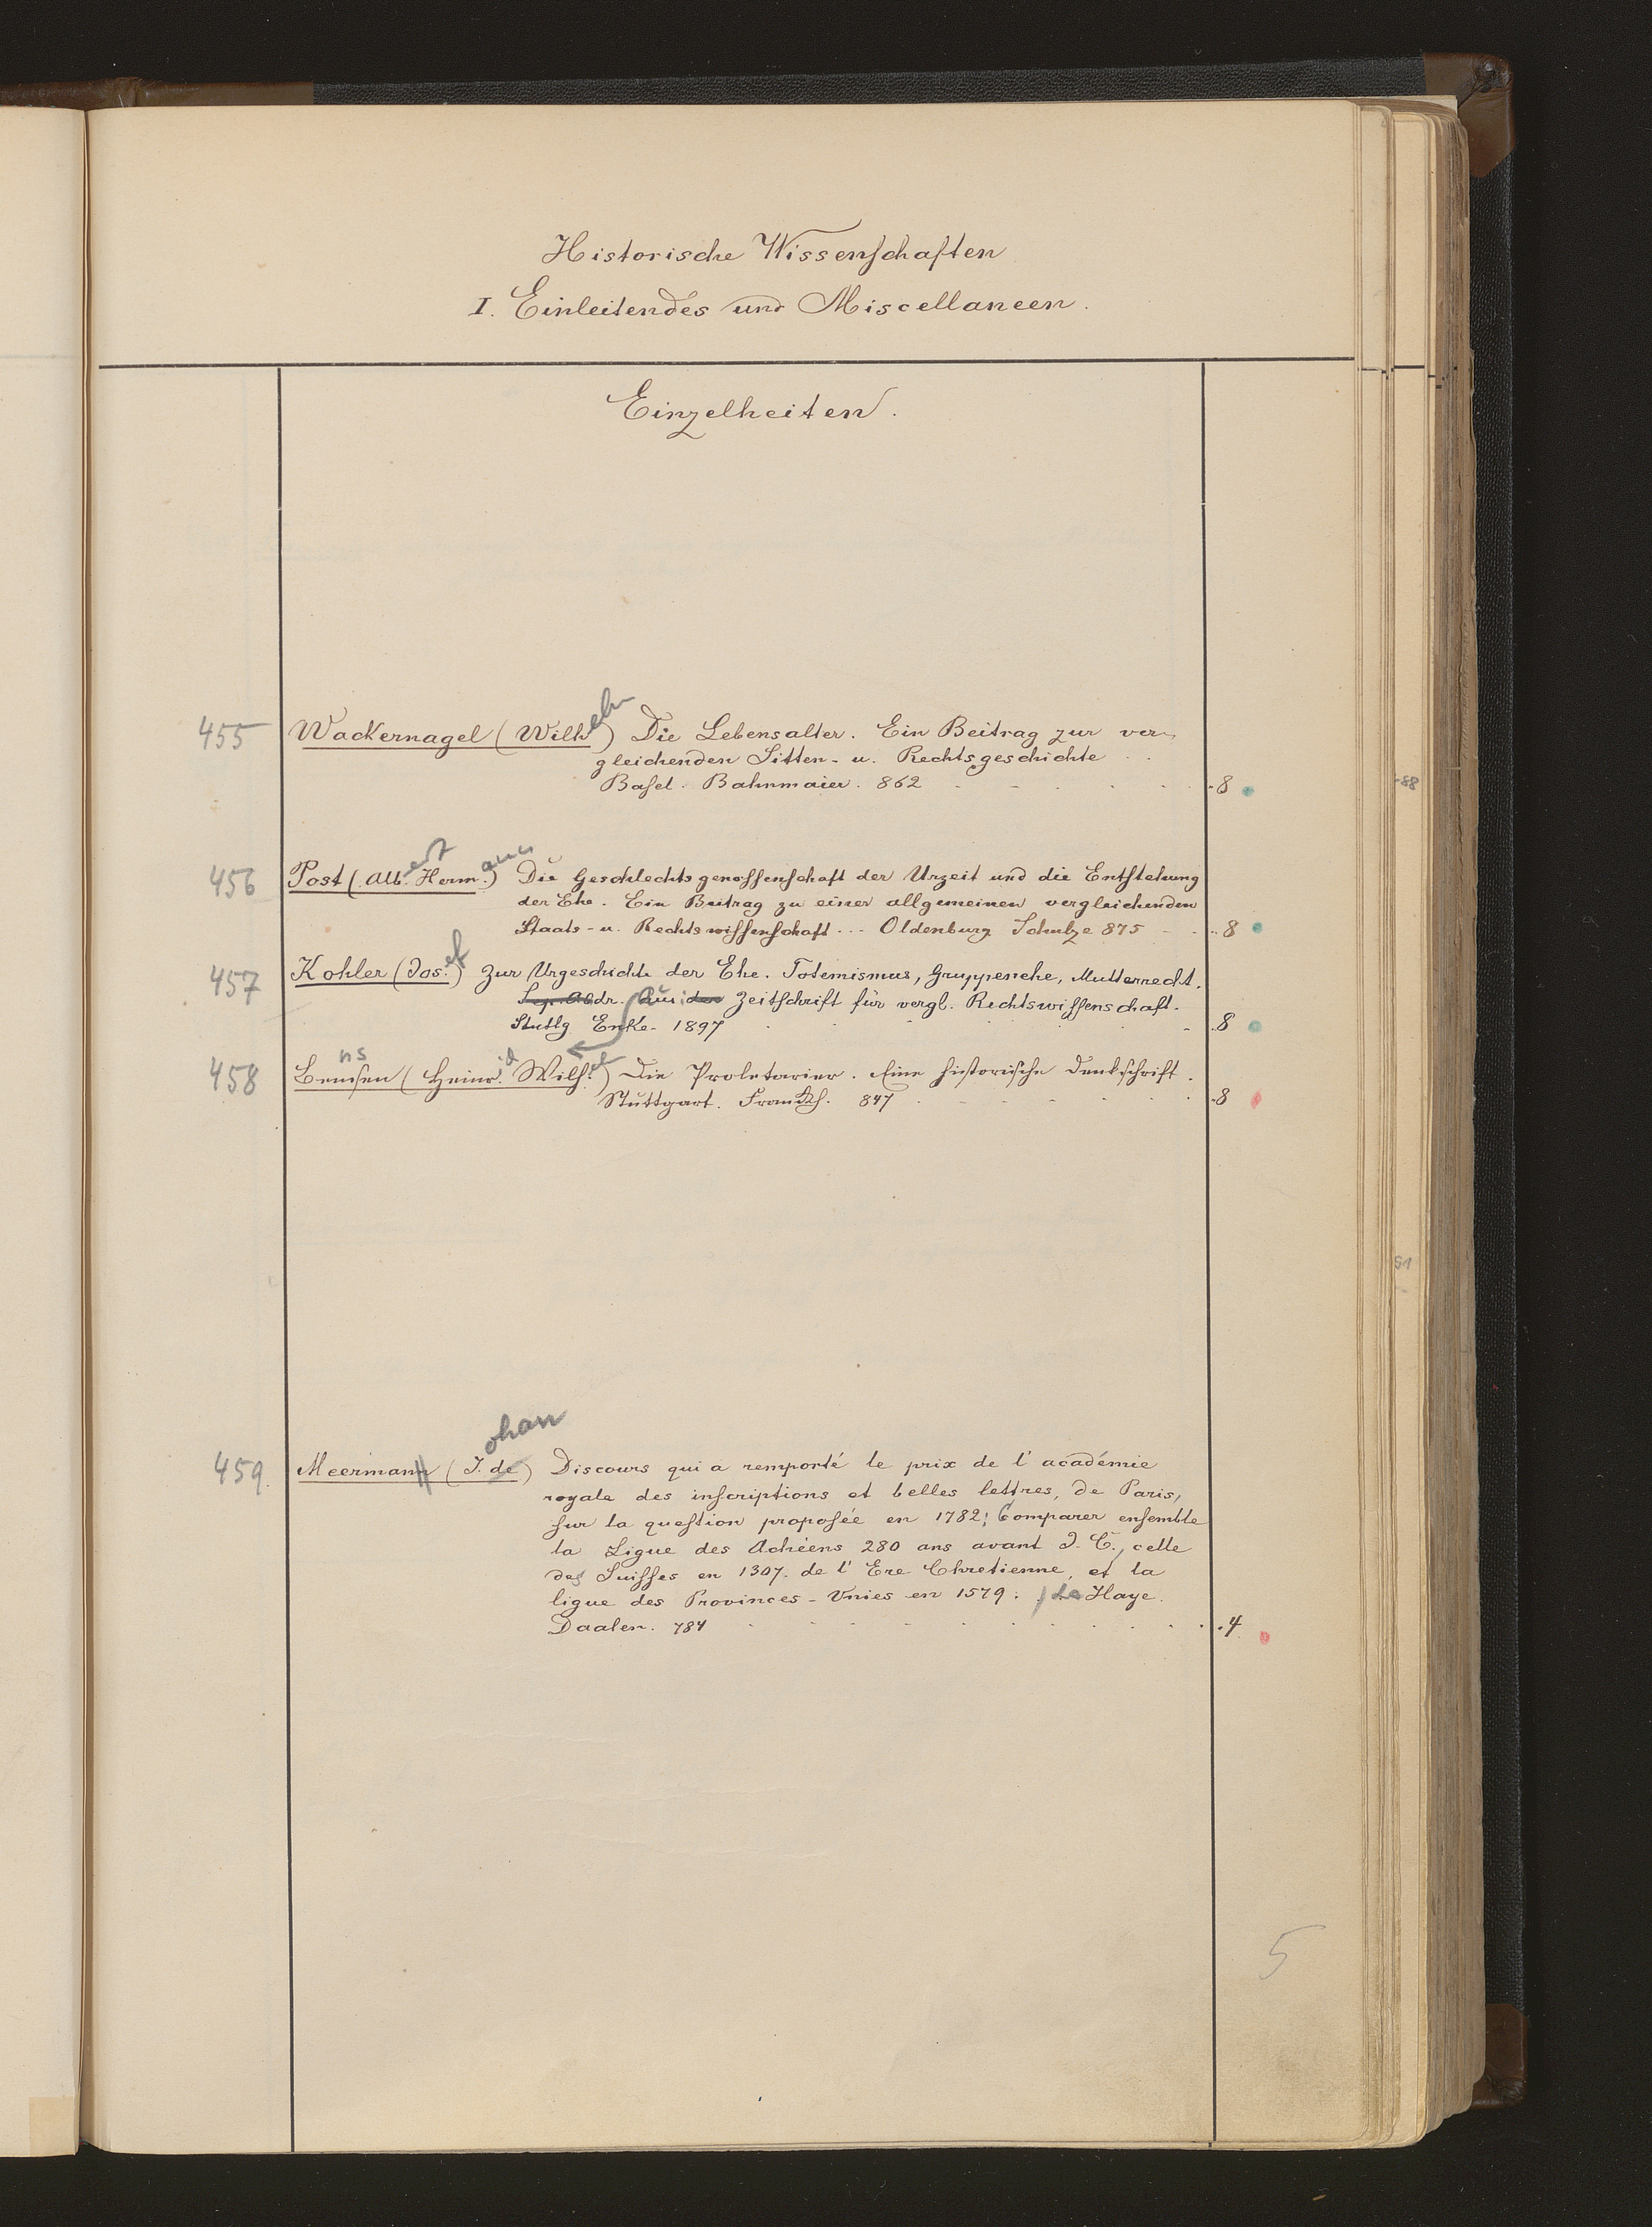 Historische Wissenschaften
I. Einleitendes und Miscellaneen.
Einzelheiten.
455 Wackernagel (Wilhelm) Die Lebensalter. Ein Beitrag zur ver-
gleichenden Sitten- u. Rechtsgeschichte
Basel. Bahnmaier. 862 8
88
456 Post (Albert Hermann) Die Geschlechtsgenossenschaft der Urzeit und die Entstehung
der Ehe. Ein Beitrag zu einer allgemeinen vergleichenden
Staats- u. Rechtswissenschaft... Oldenburg Schulze 875 8
457 Kohler (Josef) Zur Urgeschichte der Ehe. Totemismus, Gruppenehe, Mutterrecht.
Sep. Abdr. aus: den Zeitschrift für vergl. Rechtswissenschaft.
Stuttg Enke. 1897 8
458 Bensen (Heinr. Wilh.) Die Proletarier. Eine historische Denkschrift.
Stuttgart. Franckh. 847 8
51
459. Meermann (J. de) ohan Discours qui a remporté le prix de l'académie
royale des inscriptions et belles lettres, de Paris,
sur la question proposée en 1782; Comparer ensemble
la Ligue des Achéens 280 ans avant J. C., celle
des Suisses en 1307. de l'Ere Chretienne, et la
ligue des Provinces-Unies en 1579. La Haye.
Daalen. 784 4
5